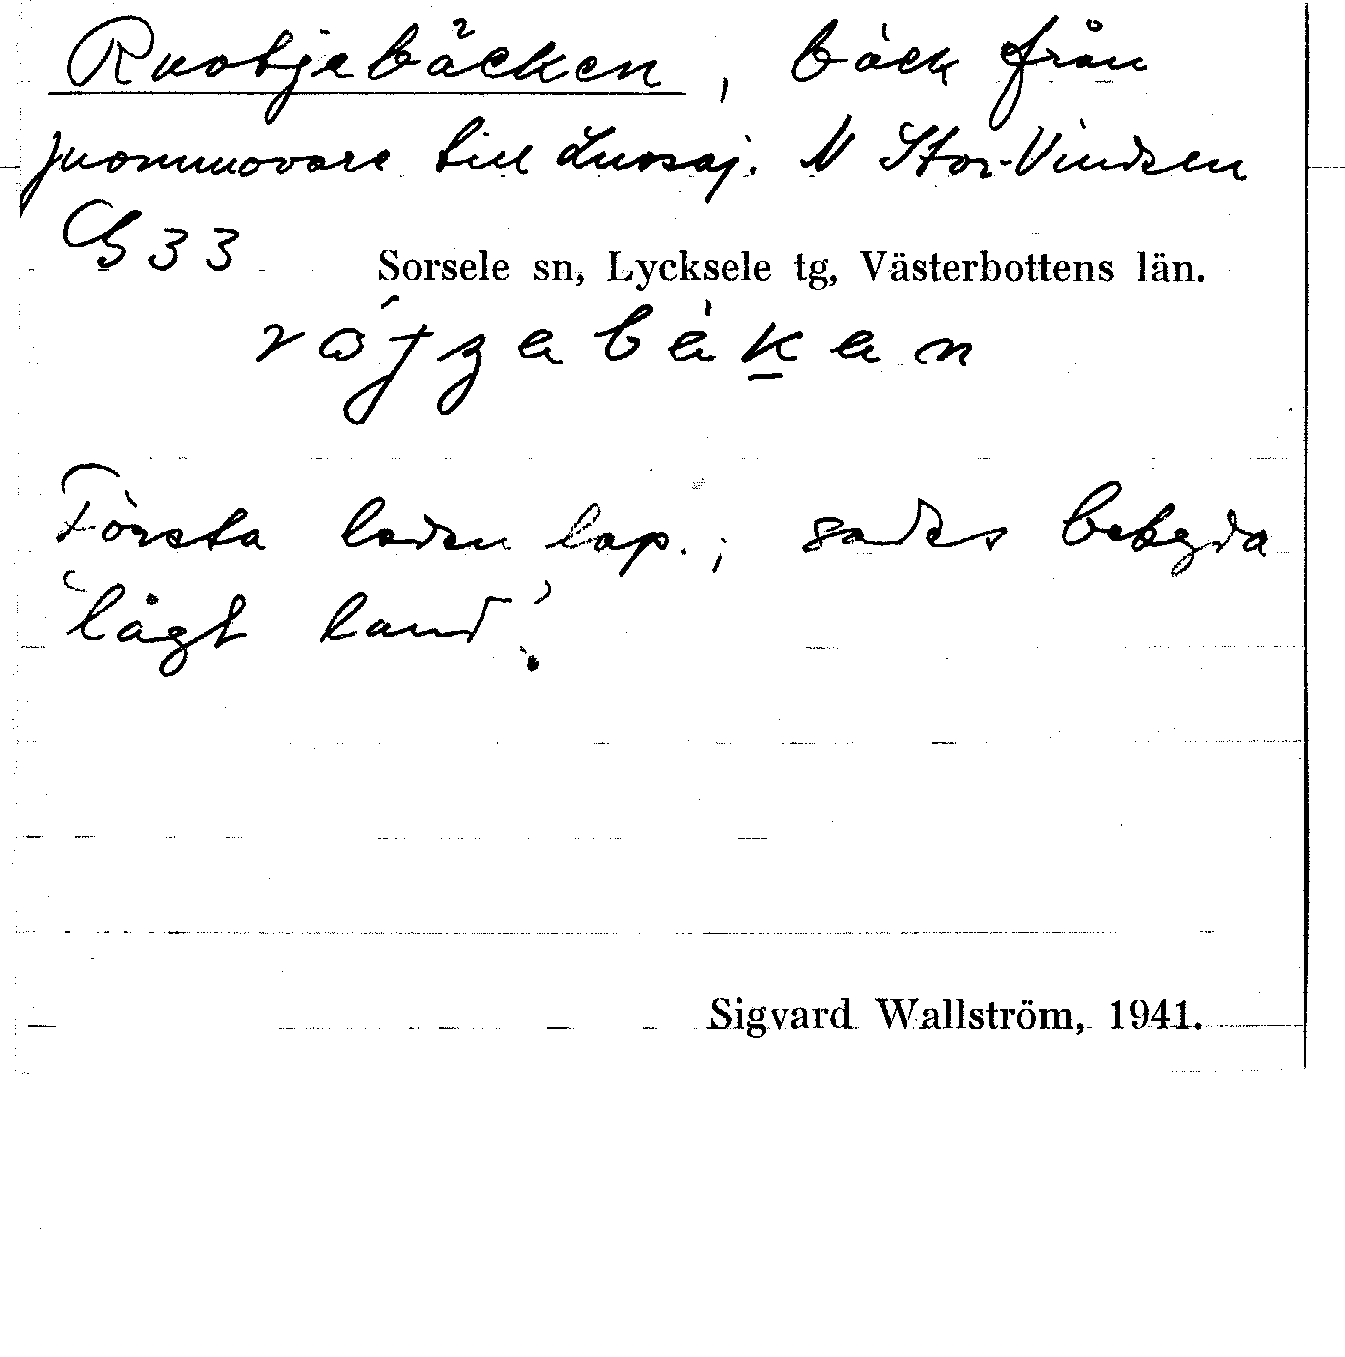 Ruotjebäcken, bäck från
Juommovare till Luosaj. N Stor-Vindeln
G 33
Sorsele sn, Lycksele tg, Västerbottens län.
Första leden lap.; sades betyda
'lågt land'.
Sigvard Wallström, 1941.